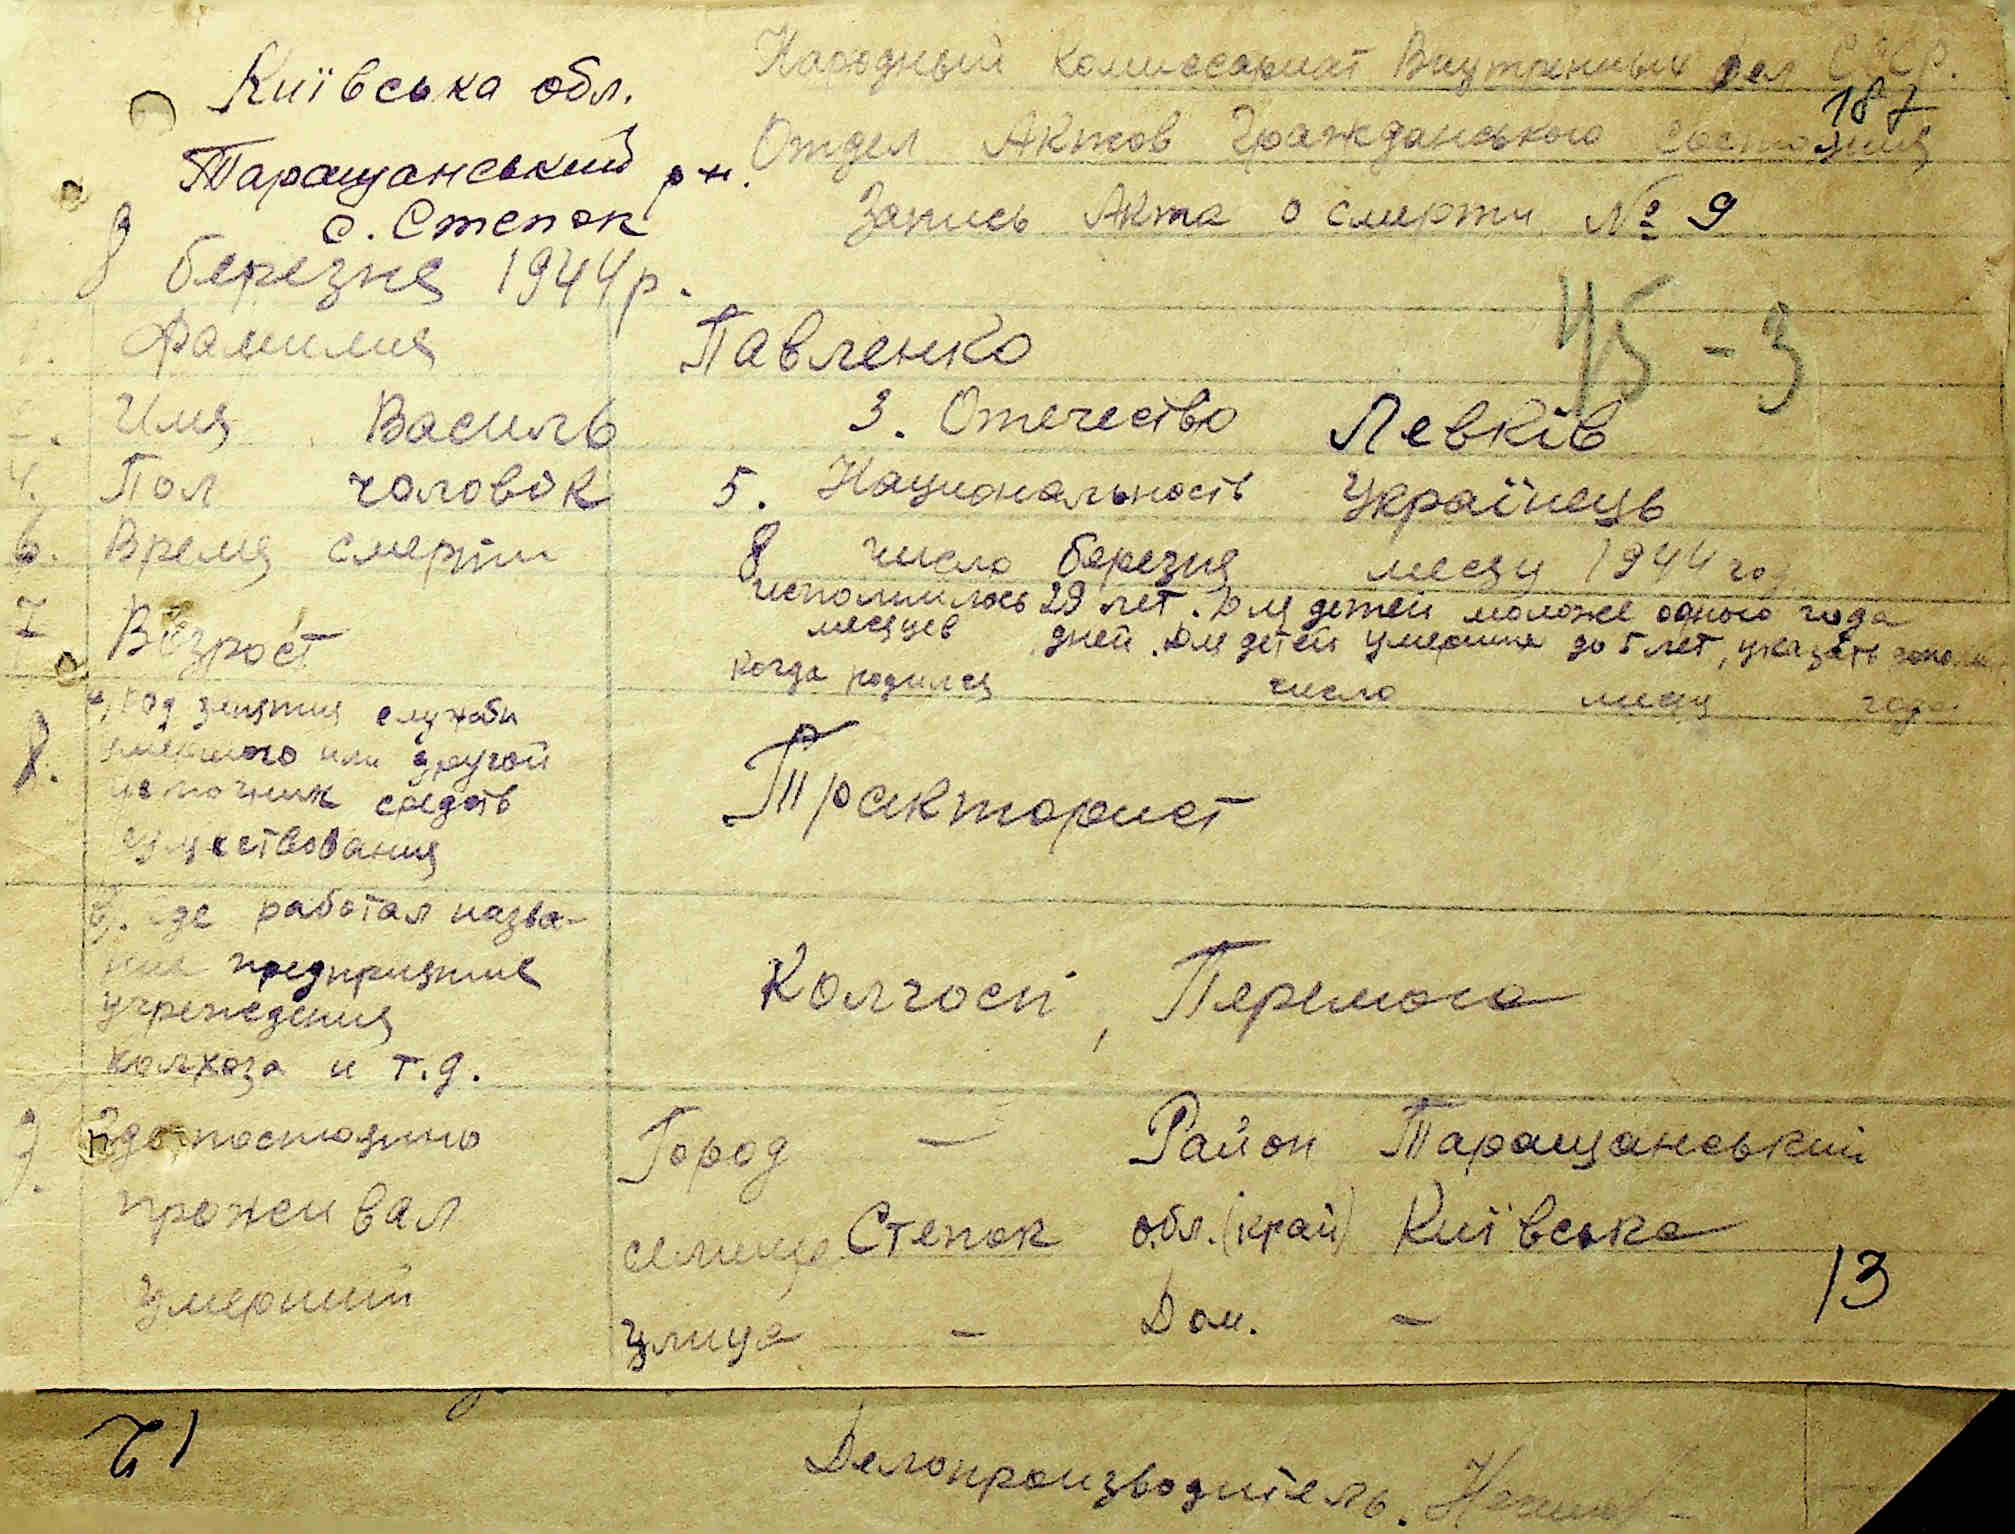 Київська обл.
Таращанський р-н.
с. Степок
8 березня 1944 р.
Народный Комиссариат Внутренных дел СССР.
187
Отдел Актов Гражданського Состояния
Запись Акта о смерти № 9
45-3
1. Фамилия Павленко
2. Имя Василь 3. Отечество Левків
4. Пол чоловік 5. Национальность Українець
6. Время смерти 8 число березня месяц 1944 год
7. Возраст исполнилось 29 лет. Для детей моложе одного года
месяцев дней. Для детей умерших до 5 лет, указать
когда родился число месяц года
8. а) Род занятия службы
умершего или другой
источник средств
существования
Тракторист
б). где работал назва-
ние предприятия
учреждения
колхоза и т.д.
Колгосп, Перемога
9. Где постояно
проживал
умерший
Город — Район Таращанський
селище Степок обл. (край) Київська
улица — Дом. —
13
12
Делопроизводитель.